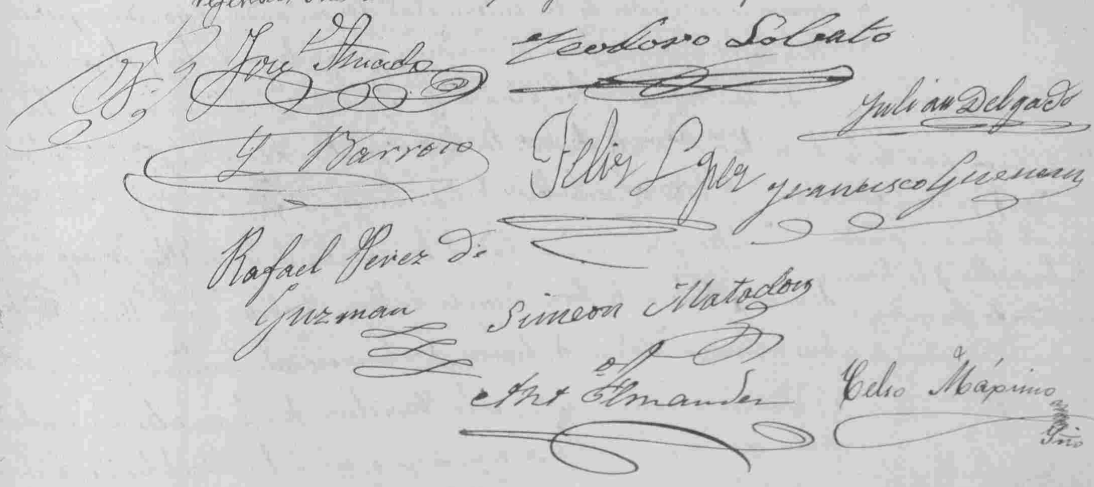 José
Teodoro Lobato
Julian Delgado
Y Barroso
Felix Lopez
Francisco Guerrero
Rafael Perez de
Guzman
Simeon Matador
Antº Fernander
Celso Máximo